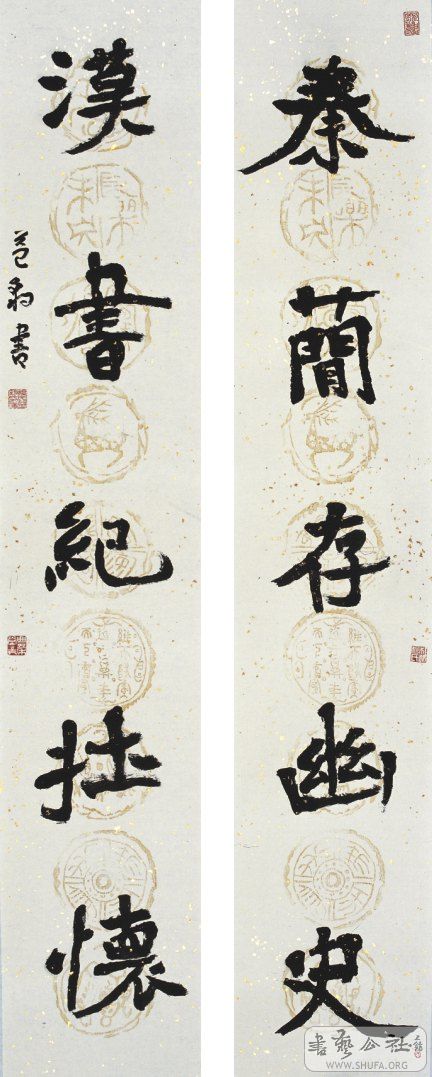 秦簡存幽史
漢書紀壯懷
書
書藝公社
WWW.SHUFA.ORG